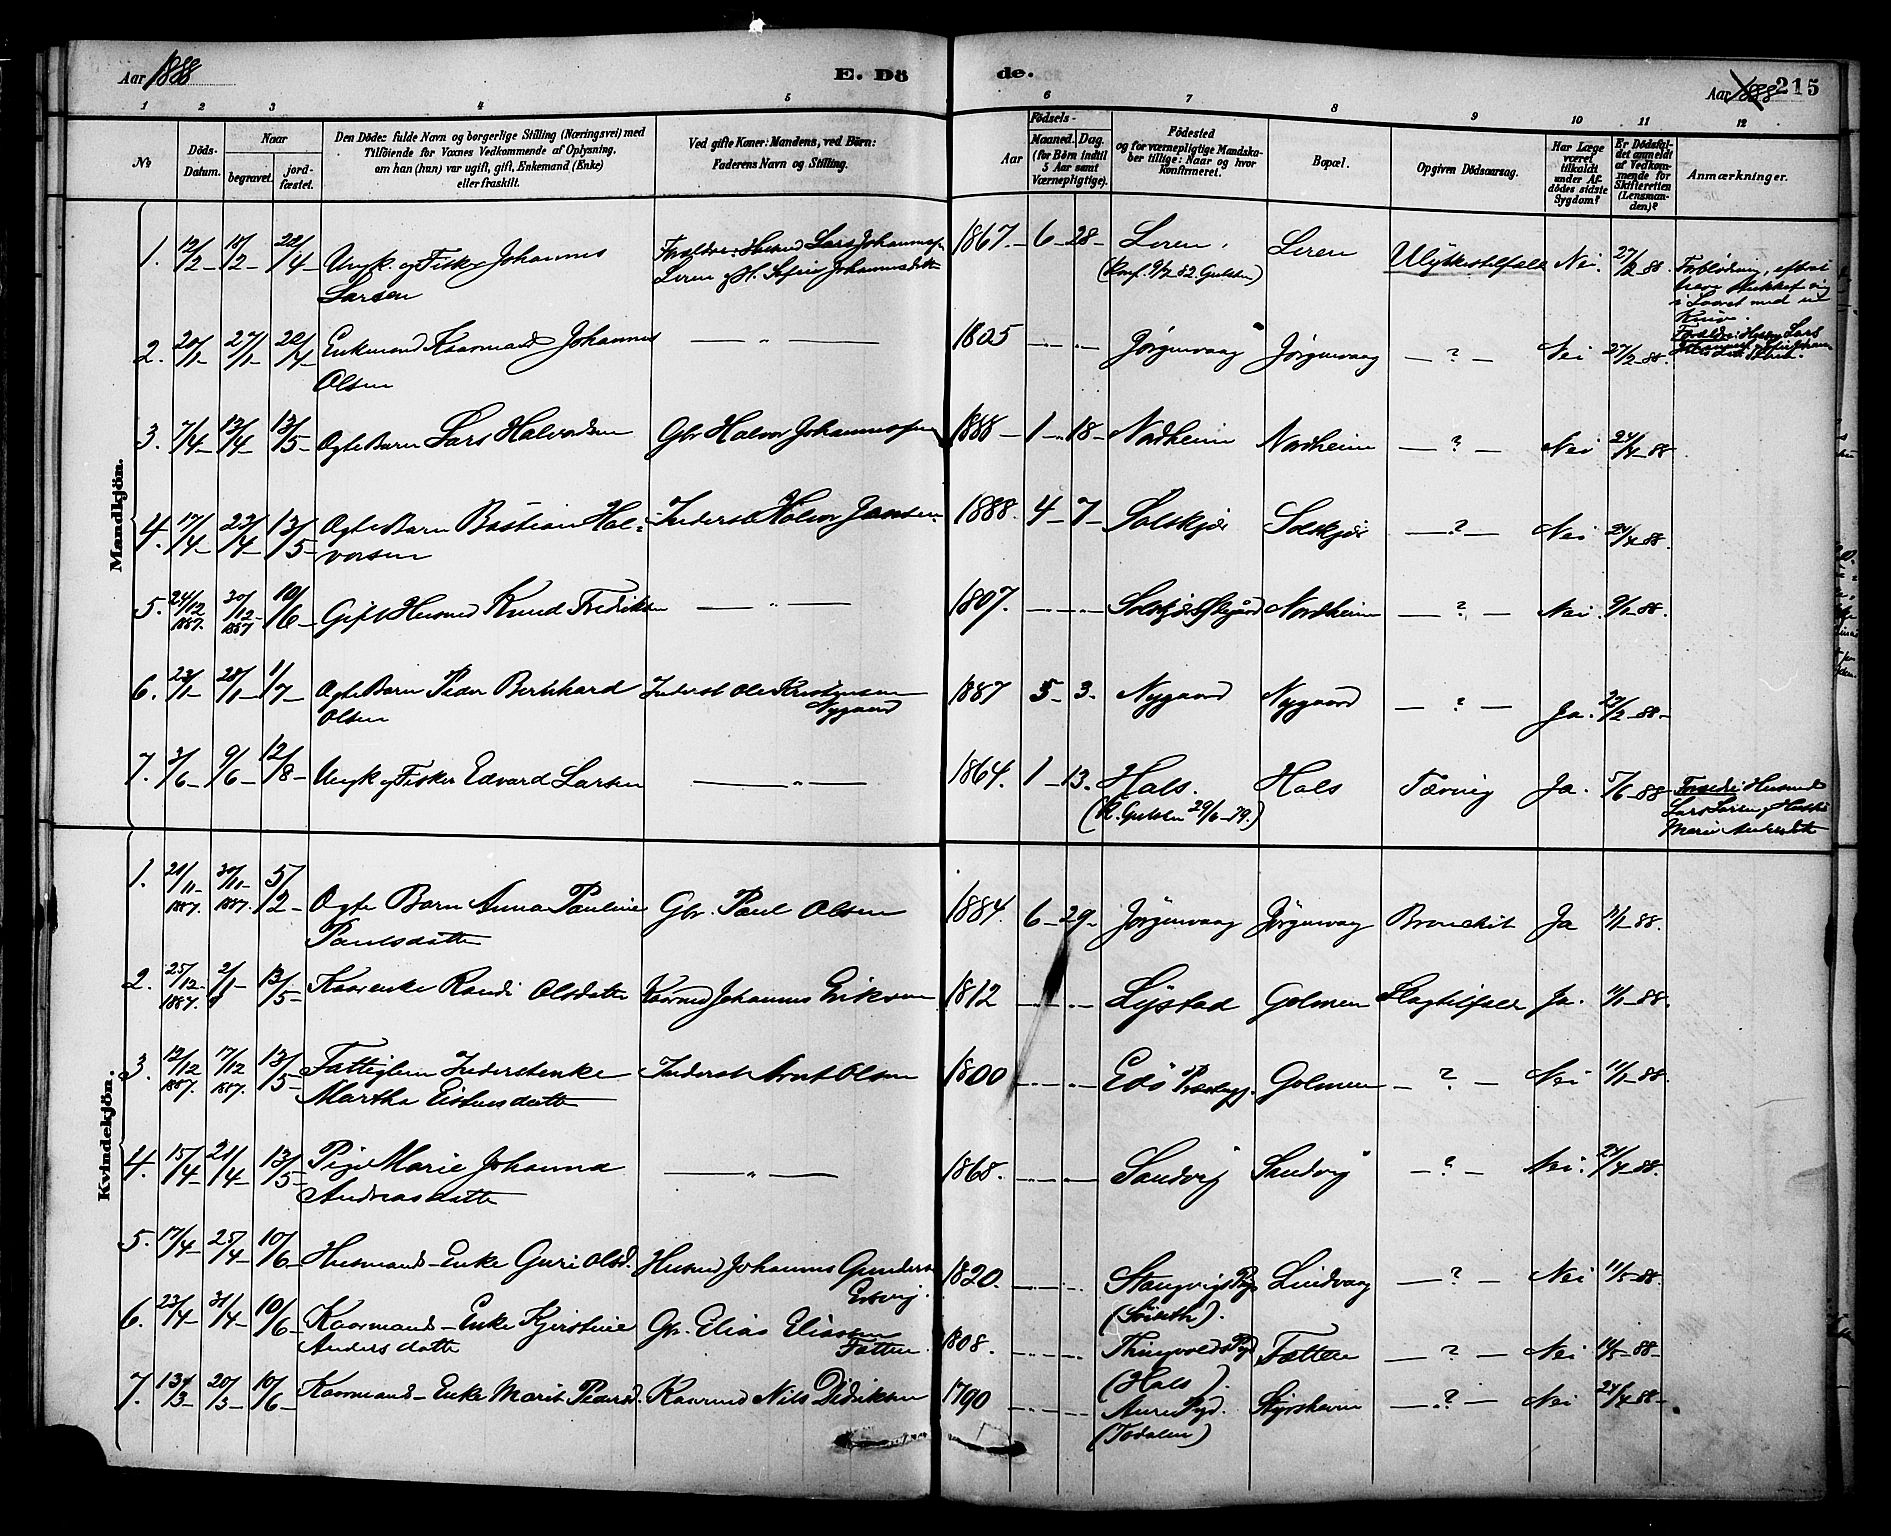 Aar 1888
E. Dö de.
Aar 1888 215
1 2 3 4 5 6 7 8 9 10 11 12
No
Döds-Datum.
Naar begravet. jordfæstet.
Den Dödes fulde Navn og borgerlige Stilling (Næringsvei) med
Tilföiende for Voxnes Vedkommende af Oplysning,
om han (hun) var ugift, gift, Enkemand (Enke)
eller fraskilt.
Ved gifte Koner: Mandens, ved Börn:
Faderens Navn og Stilling.
Födsels-
Aar Maaned. Dag.
(for Börn indtil
5 Aar samt
Værnepligtige).
Födested
og for værnepligtige Mandskaber
tillige: Naar og hvor
konfirmeret.
Bopæl.
Opgiven Dödsaarsag.
Har Læge
været
tilkaldt
under Afdödes
sidste
Sygdom?
Er Dödsfaldet
anmeldt
af Vedkommende
for
Skifteretten
(Lensmanden)?
Anmærkninger.
Mandkjön.
1. 12/2 18/2 22/4 Ungk. og Fisker Johannes Larsen Forældre: Husmd Lars Johannesen Leren 1867 6 28 Leren, Leren Ulykkestilfælde Nei. 27/2 88 Forblödning, efterat have stukket sig i Laaret med en Kniv.
2. 20/1 27/1 22/4 Enkemand Kaarmand Johannes Olsen — " — 1805 Jörgenvaag Jörgenvaag — ? — Nei 27/2 88.
3. 7/4 13/4 13/5 Ægte Barn Lars Halvorsen Gbr Halvor Johannessen 1888 1 18 Nordheim Nordheim — ? — Nei 24/4 88
4. 17/4 23/4 13/5 Ægte Barn Bastian Halvorsen Inderst Halvor Jansen 1888 4 7 Solskjör Solskjör — ? — Nei 24/4 88.
5. 24/12 1887. 30/12 1887 10/6 Gift Husmd Knud Fredriksen — " — 1807. Nordheim — ? — Nei 9/1 88.
6. 23/1 28/1 1/7 Ægte Barn Peder Bernhard Olsen Inderst Ole Kristensen Nygaard 1887 5 3. Nygaard Nygaard — ? — Ja. 27/2 88
7. 3/6 9/6 12/8 Ungk. og Fisker Edvard Larsen — " — 1864. 1 13. Hals. (K. Gulsten 29/6 79.) Hals Tæring Ja. 5/6 88 Forældre: Husmd Lars Larsen og Hustru Marie Andersdt
Kvindekjön.
1. 21/11 1887. 30/11 1887. 5/2 Ægte Barn Anna Pauline Paulsdatter Gbr. Paul Olsen 1884. 6 29 Jörgenvaag Jörgenvaag Bronchit Ja 11/1 88.
2. 25/12 1887. 2/1 13/5 Kaarenke Randi Olsdatter Kaarmd Johannes Eriksen 1812 Lystad Golmen Slagtilfælde Ja. 11/1 88.
3. 12/12 1887. 17/12 1887. 13/5 Fattiglem Inderstenke Martha Eistensdatter Inderst Arnt Olsen 1800 Edö Præstegj. Golmen — ? — Nei 11/1 88.
4. 15/4 21/4 13/5 Pige Marie Johanna Andreasdatter — " — 1868. Sandvig Sandvig — ? — Nei. 24/4 88.
5. 17/4 25/4 10/6 Husmands-Enke Guri Olsd. Husmd Johannes Gunders. 1820. Stangvigs Pgj. Lindvaag — ? — Nei 11/5 88.
6. 23/4 31/4 10/6 Kaarmands-Enke Kjerstine Andersdatter Gbr. Elias Eliassen Fætten 1808. Thingvolds Pgd (Hals). Fætten — ? — Nei 11/5 88
7. 13/3 20/3 10/6 Kaarmands-Enke Marit Pedersd. Kaarmd Nils Didriksen 1790 Aure Pgd. (Todalen) Styrshavn — ? — Nei 24/4 88